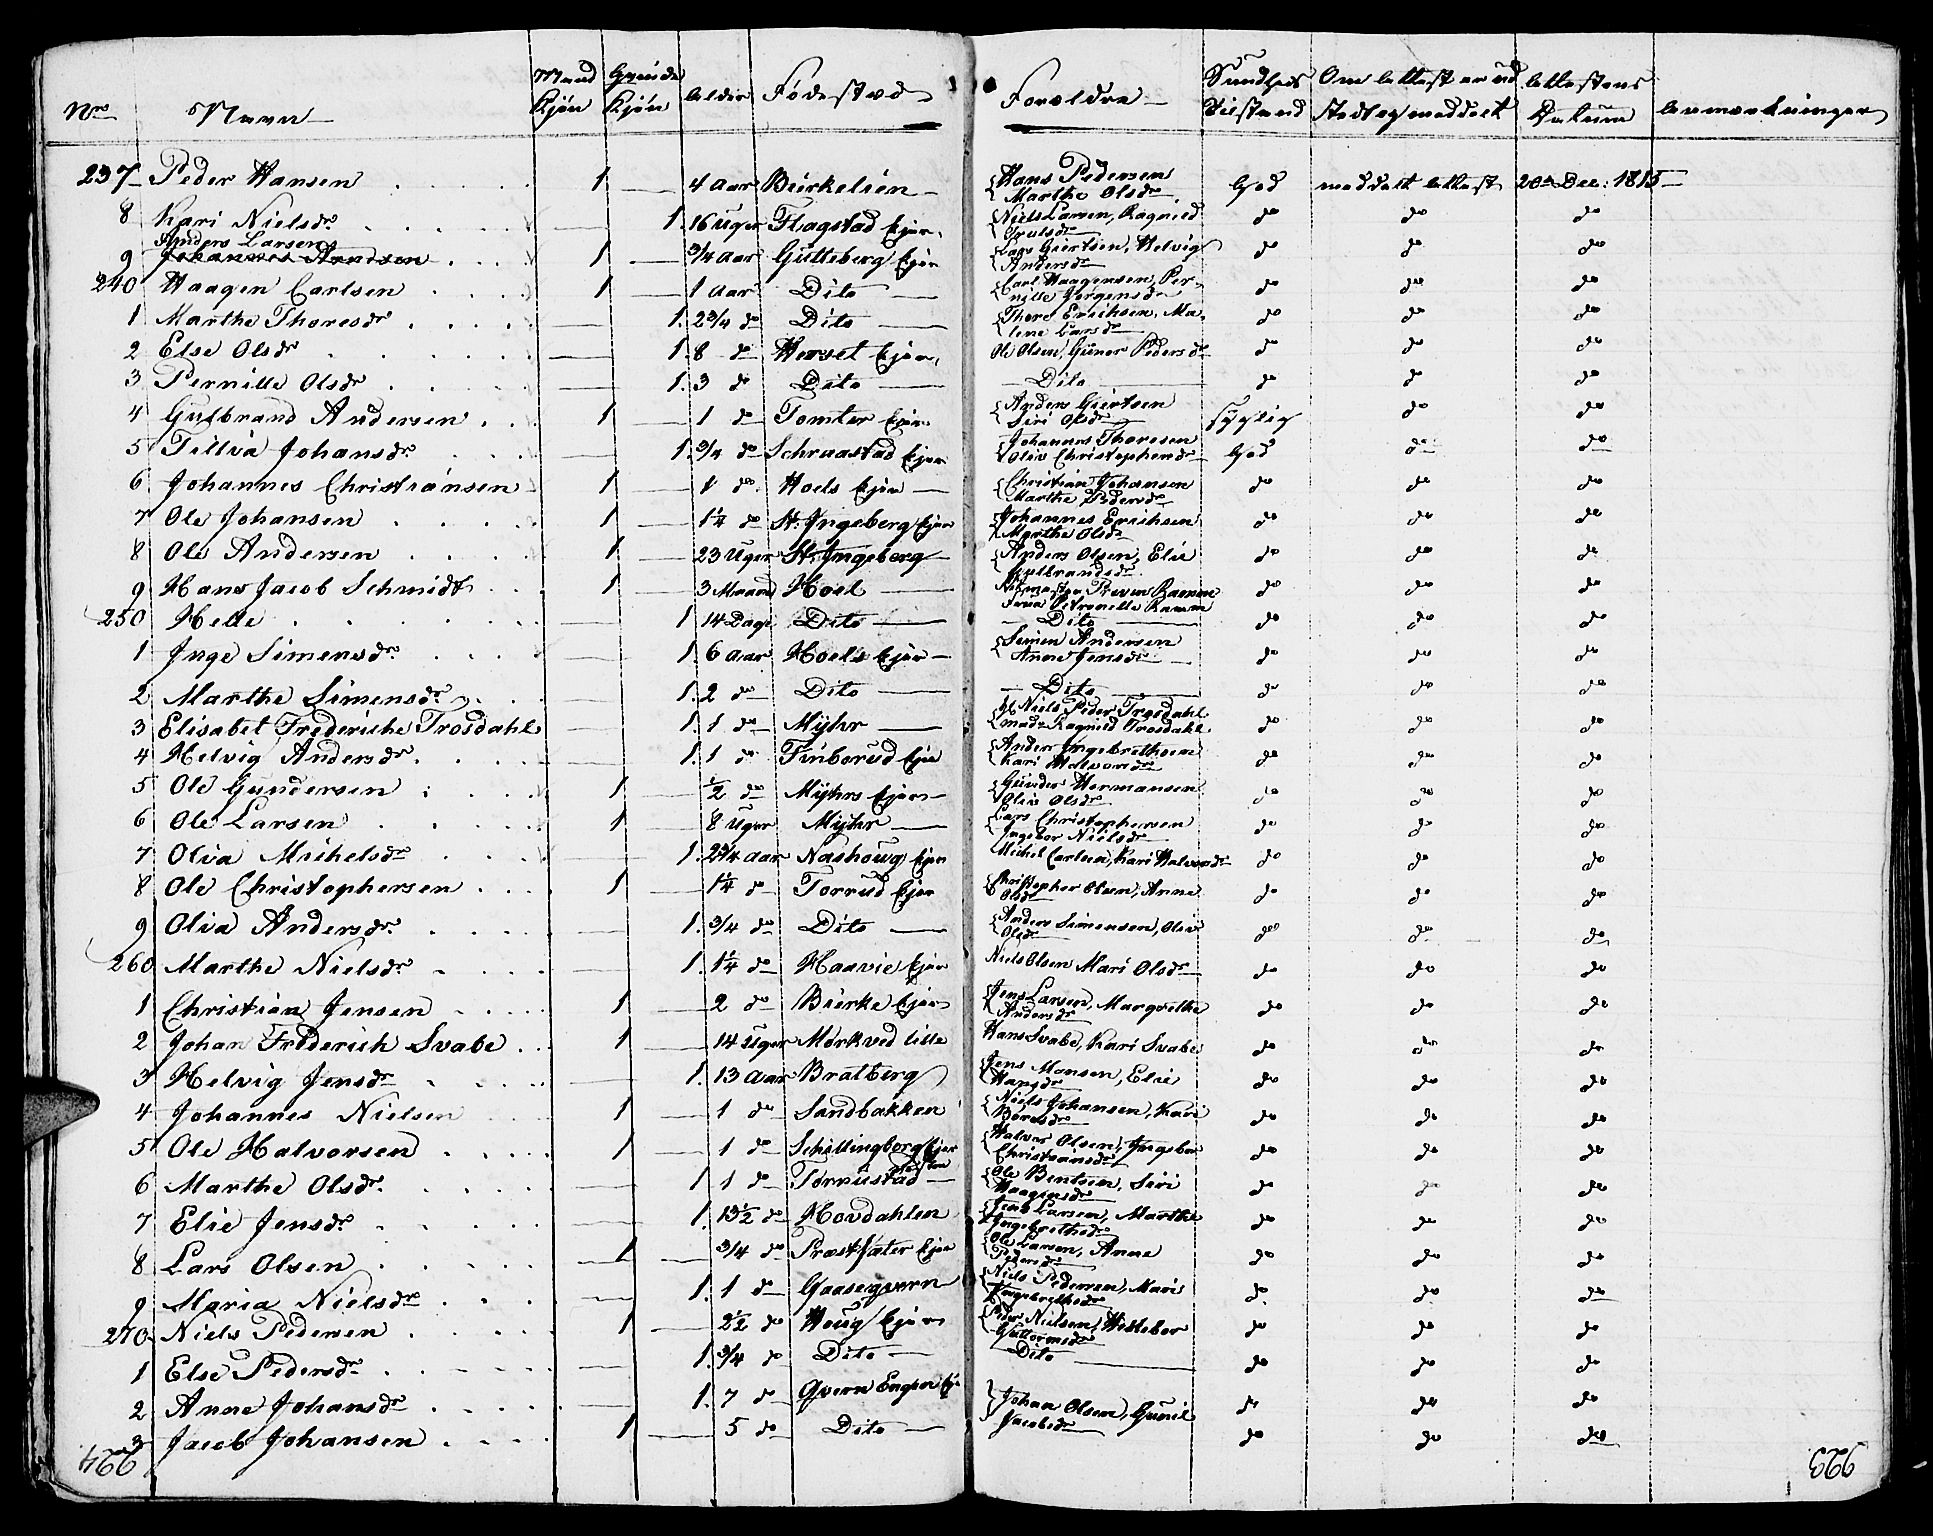 Nr Navn Mand Kjøn Qvinde Kjøn Alder Fødested Forældre Sundheds Tilstand Om Attest er udstedt og meddeelt Attestens Datum Anmærkninger
237 Peder Hansen 1 4 Aar Beirkelien Hans Pedersen Marthe Olsdr God meddelt Attest 20de Dec: 1815
8 Kari Nielsdr 1 16 Uger Flagstad Ejer Niels Larsen, Ragnild Trulsdr do do do
9 Johannes Arndsen Anders Larsen 1 3/4 Aar Gutteberg Ejer Lars Giertsen, Helvig Andersdr do do do
240 Haagen Carlsen 1 1 Aar Dito Carl Haagensen, Pernille Jørgensdr do do do
1 Marthe Thoresdr 1 2 3/4 do Dito Thore Erichsen, Malene Larsdr do do do
2 Else Olsdr 1 8 do Hervet Ejer Ole Olsen, Guner Pedersdr do do do
3 Pernille Olsdr 1 3 do Dito Dito do do do
4 Gulbrand Andersen 1 1 do Tomter Ejer Anders Giertsen Siri Olsdr Syglig do do
5 Tillva Johansdr 1 3/4 do Schraastad Ejer Johannes Thoresen Olive Christophersdr God do do
6 Johannes Christiansen 1 1 do Hoels Ejer Christian Johansen Marthe Pedersdr do do do
7 Ole Johansen 1 1 1/4 do St: Ingeberg Ejer Johannes Erichsen Marthe Olsdr do do do
8 Ole Andersen 1 23 Uger St: Ingeberg Anders Olsen, Elie Gulbrandsdr do do do
9 Hans Jacob Schmidt 1 3 Maaned Hoel Ritmester Preven Ramm Frue Petronelle Ramm do do do
250 Helle 1 14 Dage Dito Dito do do do
1 Inge Simensdr 1 6 Aar Hoels Ejer Simen Andersen Anne Jensdr do do do
2 Marthe Simensdr 1 2 do Dito Dito do do do
3 Elisabet Frederiche Trosdahl 1 1 do Myhr Niels Peder Trosdahl mad: Ragnild Trosdahl do do do
4 Helvig Andersdr 1 1 do Finborud Ejer Anders Ingebrethsen Kari Halvorsdr do do do
5 Ole Gundersen 1 1/2 do Myhrs Ejer Gunder Hermansen Olive Olsdr do do do
6 Ole Larsen 1 8 Uger Myhr Lars Christophersen Ingebor Nielsdr do do do
7 Olia Michelsdr 1 2 3/4 Aar Nashoug Ejer Michel Carlsen, Kari Halvorsdr do do do
8 Ole Christophersen 1 1 1/4 do Torrud Ejer Christopher Olsen, Anne Olsdr do do do
9 Olia Andersdr 1 3/4 do Dito Anders Simensen, Olive Olsdr do do do
260 Marthe Nielsdr 1 1 1/4 do Haavie Ejer Niels Olsen Mari Olsdr do do do
1 Christian Jensen 1 2 do Bierke Ejer Jens Larsen, Margrethe Andersdr do do do
2 Johan Frederich Svabe 1 14 Uger Mørkved lille Hans Svabe, Kari Svabe do do do
3 Helvig Jensdr 1 13 Aar Bratberg Jens Monsen, Elie Hansdr do do do
4 Johannes Nielsen 1 1 do Sandbakken Niels Johansen, Kari do do do
5 Ole Halvorsen 1 1 do Schillingborg Ejer Halvor Olsen, Ingebor Christiansdr do do do
6 Marthe Olsdr 1 1 do Tornustad Ole Bentsen, Siri Haagensdr do do do
7 Elie Jensdr 1 13 1/2 do Hovdahlen Jens Larsen, Marthe Ingebrethsdr do do do
8 Lars Olsen 1 3/4 do Præstsæter Ejer Ole Larsen, Anne Pedersdr do do do
9 Maria Nielsdr 1 1 do Gaasegvern Niels Pedersen, Mari Ingebrethsdr do do do
270 Niels Pedersen 1 2 1/2 do Houg Ejer Peder Nielsen, Hildebor Guttormsdr do do do
1 Else Pedersdr 1 3/4 do Dito Dito do do do
2 Anne Johansdr 1 7 do Qvern Engen Ej: Johan Olsen, Gunil Jacobsdr do do do
3 Jacob Johansen 1 5 do Dito do do do
224 223